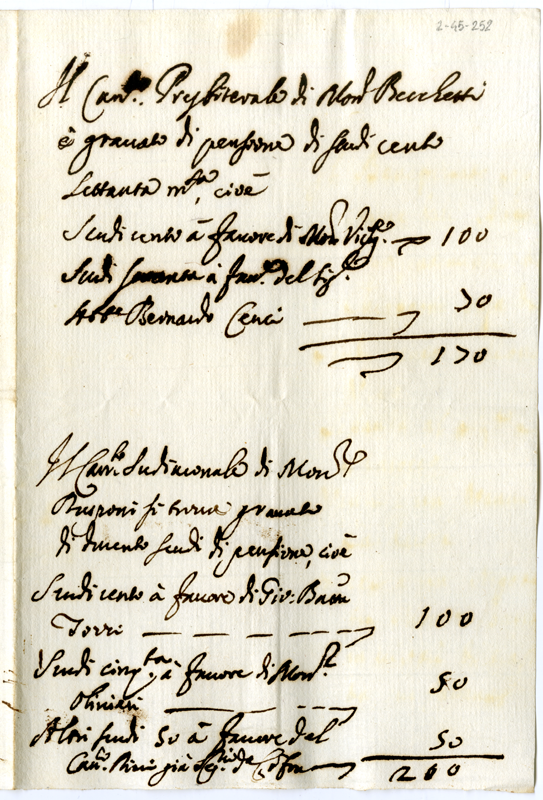 2-45-252
Il Can.to Presbiterale di Mons.r Becchetti
è gravato di pensione di scudi cento
settanta m.ta, cioè
Scudi cento à favore di Mons.r 100
Scudi settanta à fav.e del Sig.r
Abb.e Bernardo Cenci 70
170
Il Can.to Sudiaconale di Mons.r
Rusponi si trova gravato
di ducento scudi di pensione, cioè
Scudi cento à favore di Gio: Batta
Torri 100
Scudi cinq.ta à favore di Mons.r
Oliuieri 50
Altri scudi 50 à favore del
Can.co già 50
200